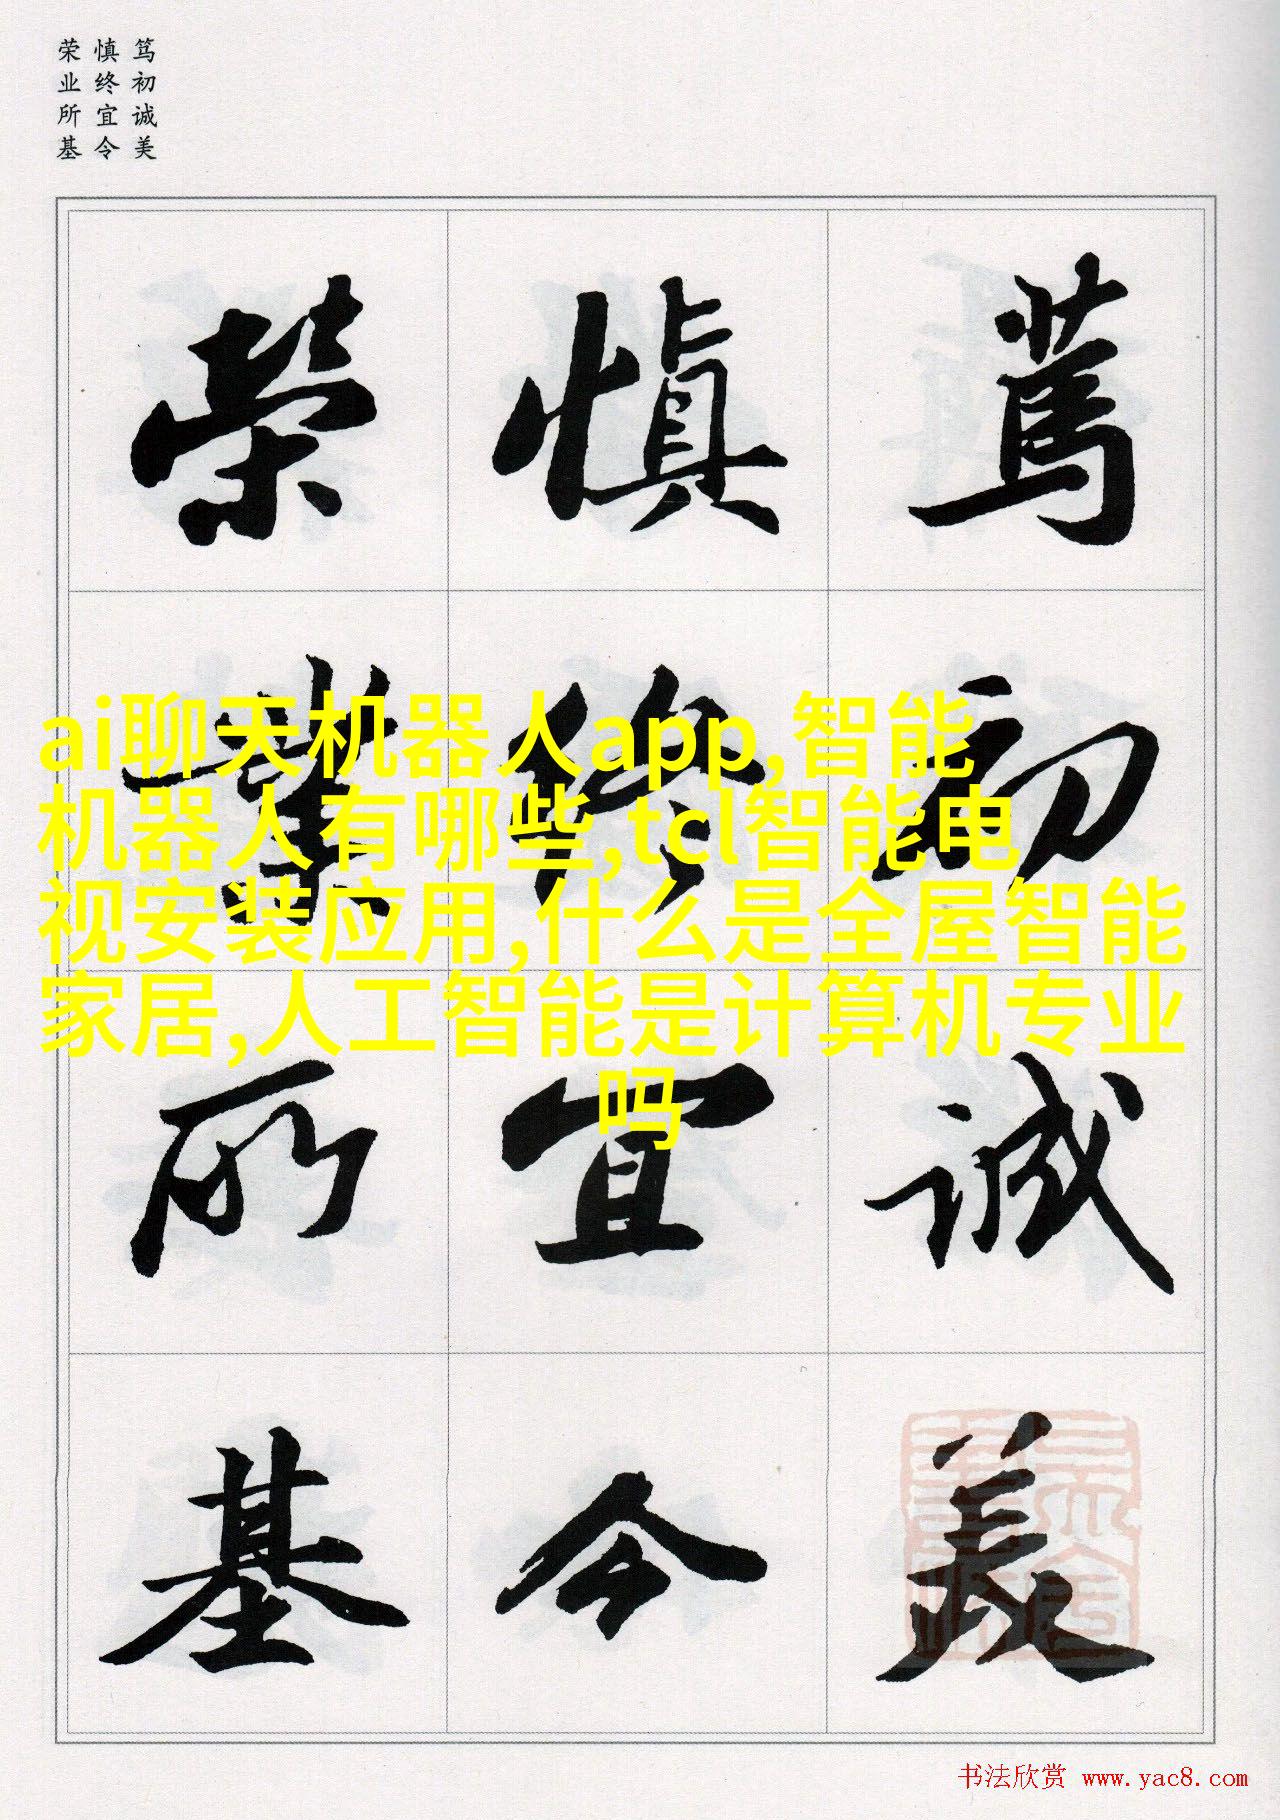 笃初诚美
慎终宜令
荣业所基
篤初誠美
慎終宜令
榮業所基
ai聊天机器人app,智能
机器人有哪些,tcl智能电
视安装应用,什么是全屋智能
家居,人工智能是计算机专业
吗
书法欣赏 www.yac8.com